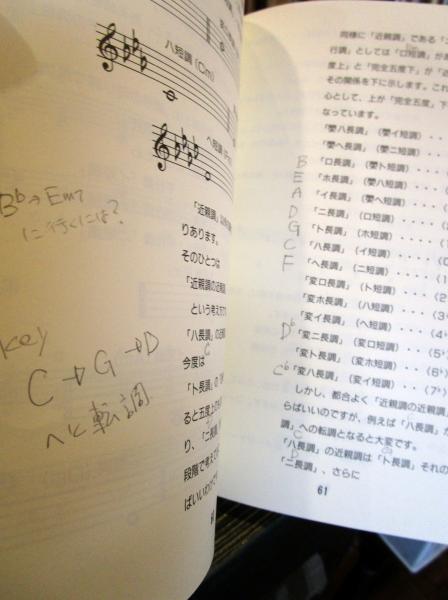 八短調 (Cm)
ヘ短調
B♭→Em7
に行くには?
Key
C→G→D
へと転調
「近親調」
りあります。
そのひとつは
「近親調の近親
という考え方
「ハ長調」の近親
C
今度は
「ト長調」の
ると五度上の
り、「ニ長調
段階で考えて
ばいいわけで
同様に「近親調」である「
行調」としては「ロ短調」が
度上」と「完全五度下」が「
その関係を下に示します。これ
心として、上が「完全五度」下
なっています。
「嬰ハ長調」(嬰イ短調)
「嬰ヘ長調」(嬰ニ短調)
B 「ロ長調」(嬰ト短調)
E 「ホ長調」(嬰ハ短調)
A 「イ長調」(嬰ヘ短調)
D 「ニ長調」(ロ短調)
G 「ト長調」(ホ短調)
C 「ハ長調」(イ短調)
F 「ヘ長調」(ニ短調)
「変ロ長調」(ト短調)
「変ホ長調」(ハ短調)
「変イ長調」(ヘ短調)
D♭ 「変ニ長調」(変ロ短調)
「変ト長調」(変ホ短調)
C♭ 「変ハ長調」(変イ短調)
しかし、都合よく「近親調の近親
らばいいのですが、例えば「ハ長調」か
調」への転調となると大変です。
「ハ長調」の近親調は「ト長調」それの
「ニ長調」、さらに
61